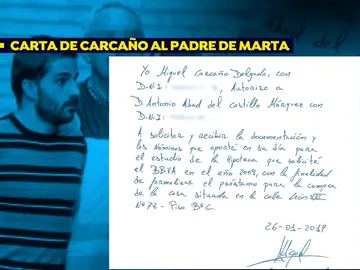 CARTA DE CARCAÑO AL PADRE DE MARTA
Yo Miguel Carcaño Delgado, con
D.N.I: , Autorizo a
D Antonio Abad del Castillo Márquez con
D.N.I:
A solicitar y recibir la documentación y
las Nóminas que aporté en su día para
el estudio de la Hipoteca que solicité
el BBVA en el año 2008, con la finalidad
de formalizar el préstamo para la compra
de la casa situada en la calle León XIII
Nº 78 - Piso BºC.
26-01-2019
Miguel